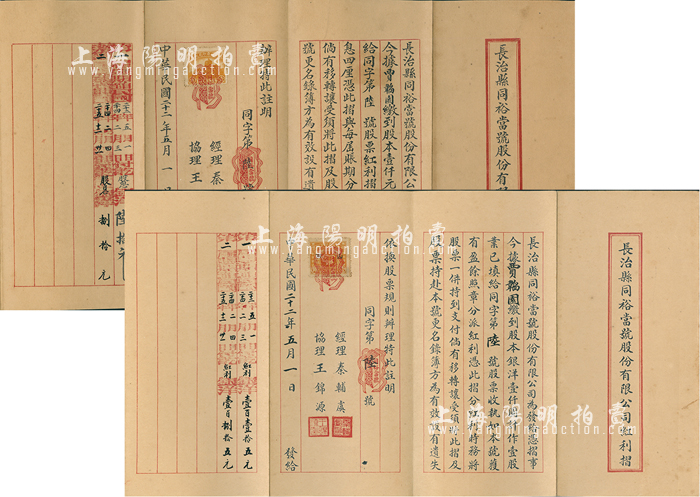 長治縣同裕當號股份有限
長治縣同裕當號股份有限公
今據賈福園繳到股本壹仟元
給同字第陸號股票紅利摺
息四厘憑此摺與每屆賬期分
倘有移轉讓受須將此摺及股
號更名錄簿方為有效設有遺
辦理特此註明
同字第陸
經理秦
協理王
中華民國二十二年五月一日
陸拾元
捌拾元
長治縣同裕當號股份有限公司紅利摺
長治縣同裕當號股份有限公司為發給憑摺事
今據賈福園繳到股本銀洋壹仟圓作壹股
業已填給同字第陸號股票收執如本號獲
有盈餘照章分派紅利憑此摺分紅利時務將
股票一併持到支付倘有移轉讓受須將此摺及
股票持赴本號更名錄簿方為有效設有遺失
依換股票規則辦理特此註明
同字第陸號
經理秦輔虞
協理王錦源
中華民國二十二年五月一日發給
一
紅利壹百壹拾五元
二
紅利壹百捌拾五元
上海陽明拍賣
yangmingauction.com
上海陽明拍賣
www.yangmingauction.com